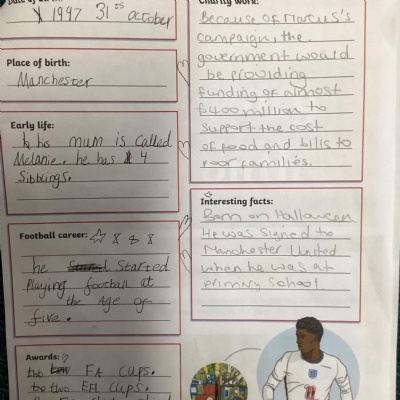 1997 31st october
Place of birth:
Manchester
Early life:
his mum is called
Melanie. he has 4
Sibbings.
Football career:
he Started
Playing football at
the Age of
five.
Awards:
two FA cups.
two EFL cups.
Charity work:
Because of Marcus's
campaign, the
government would
be providing
funding of almost
£400 million to
support the cost
of food and bills to
poor families.
Interesting facts:
Born on Halloween
He was signed to
Manchester United
when he was at
primary School